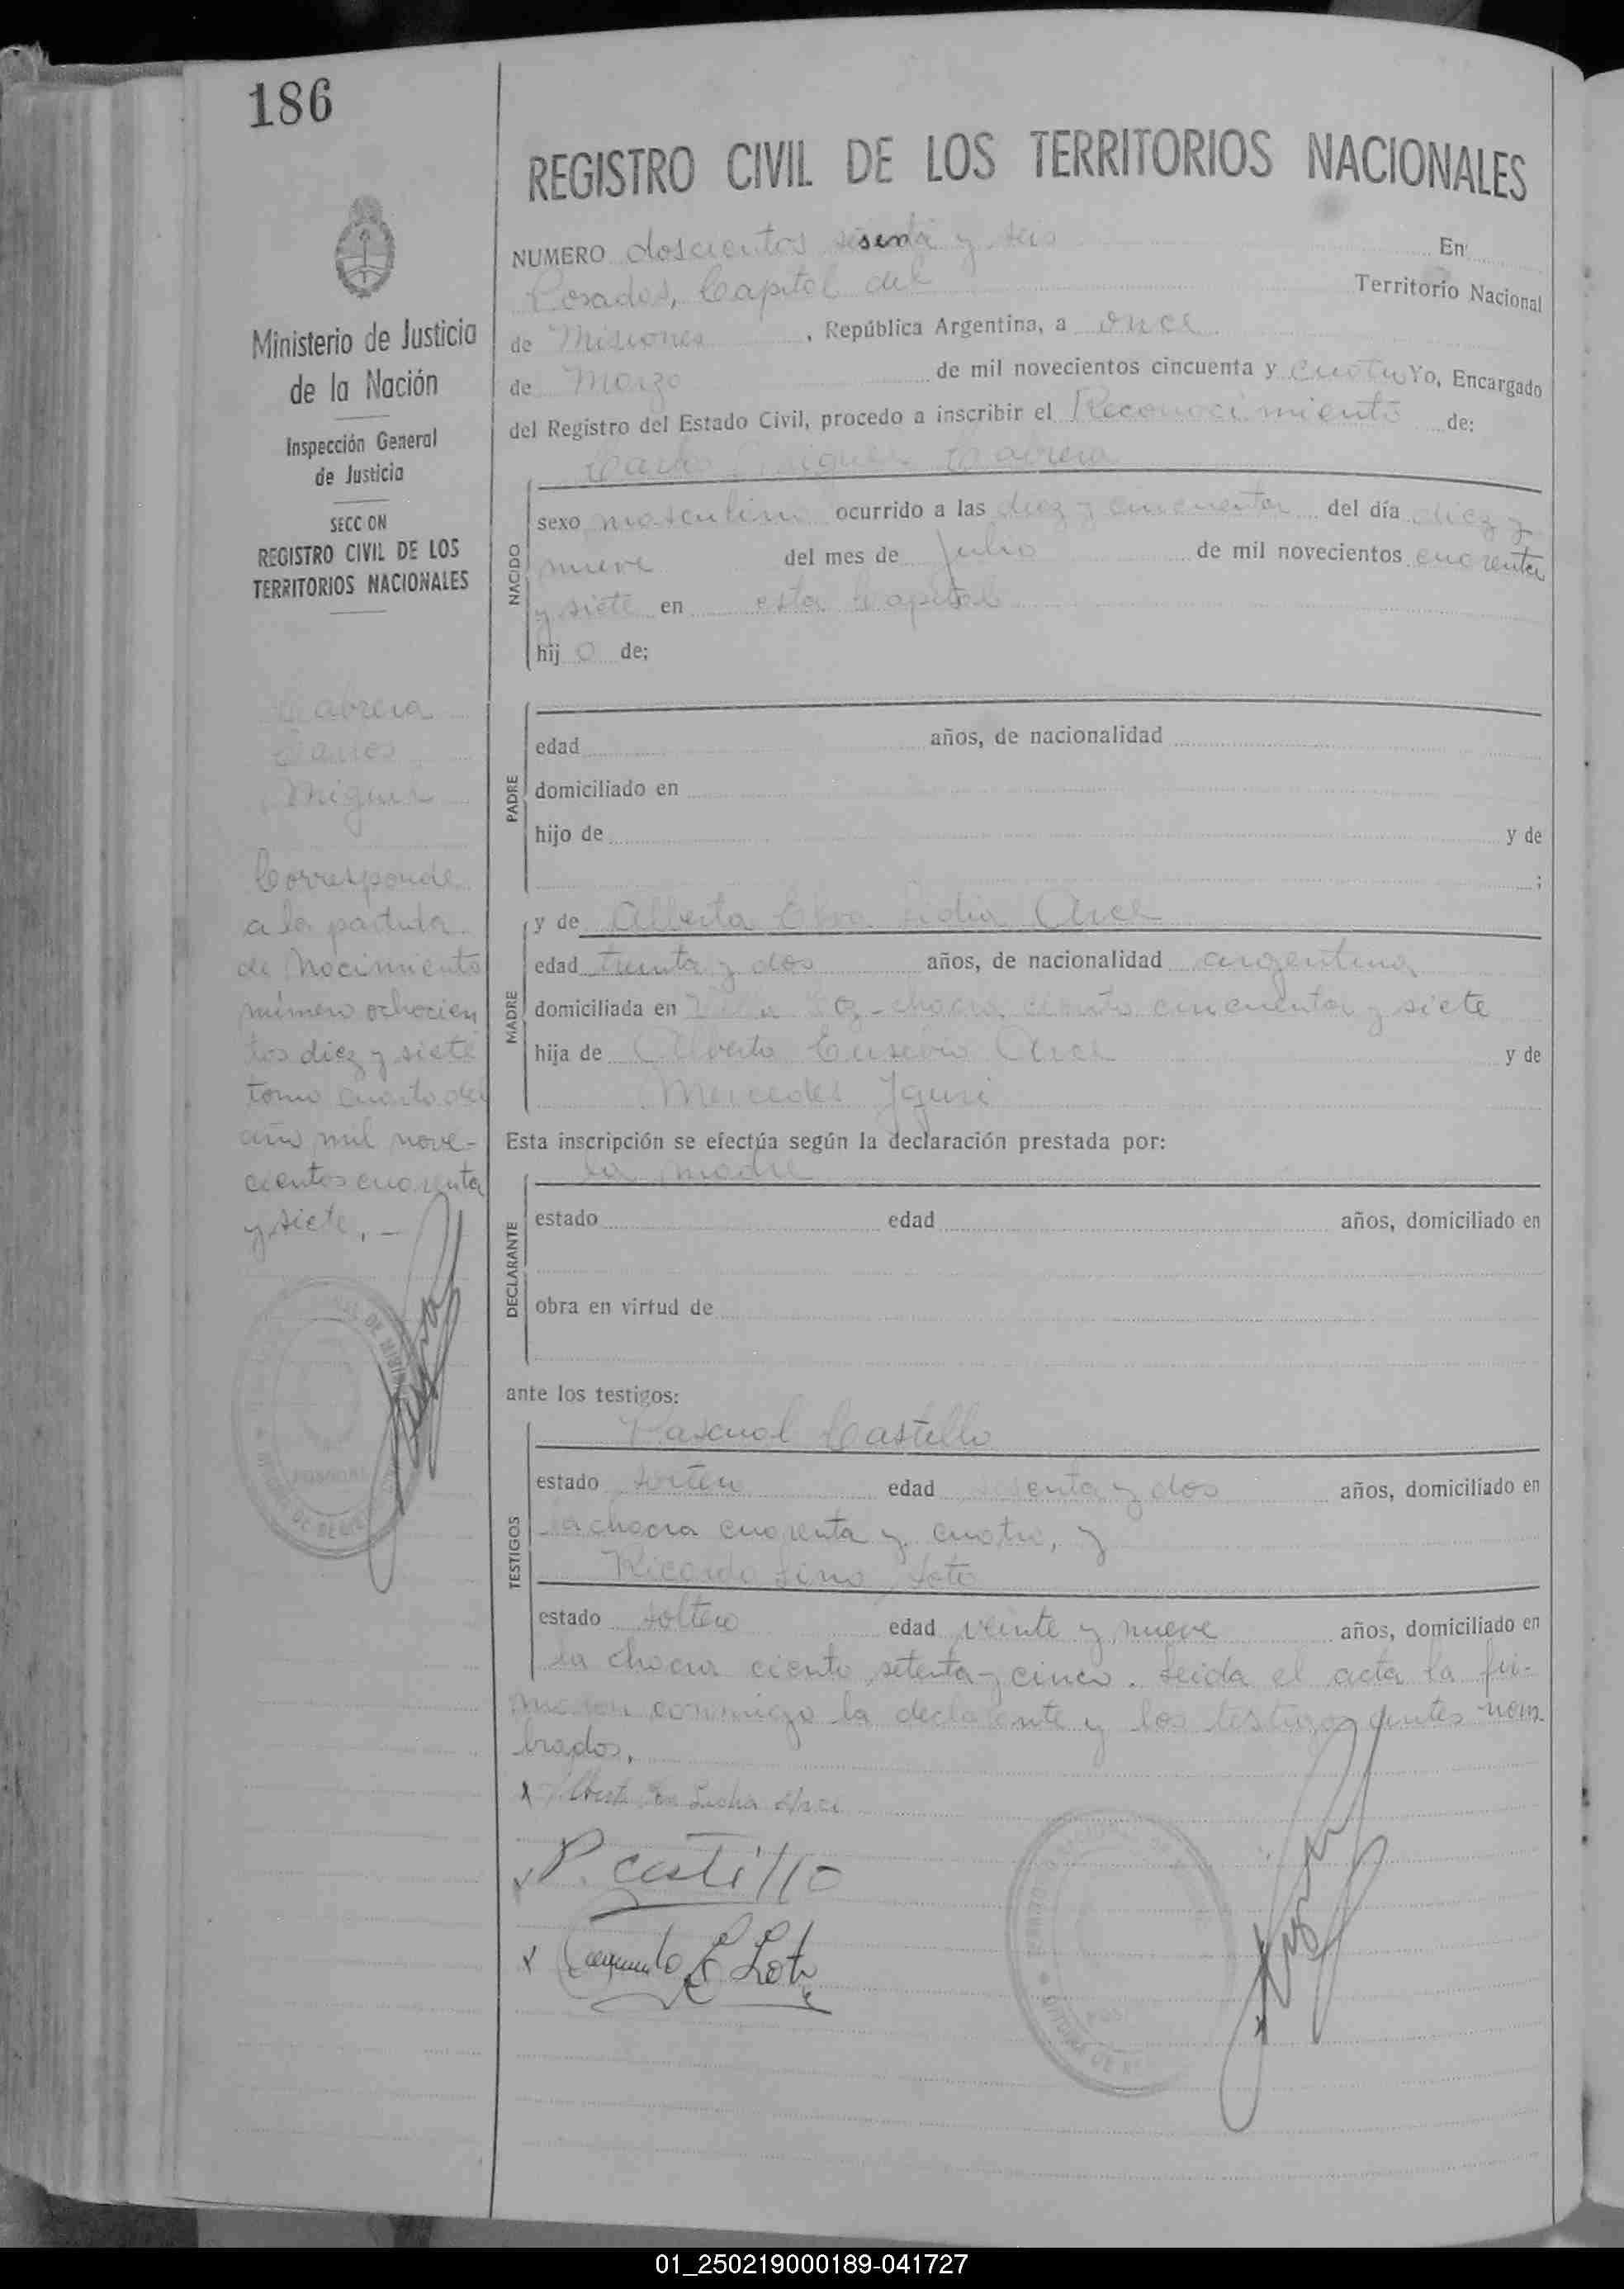 186
REGISTRO CIVIL DE LOS TERRITORIOS NACIONALES
NUMERO doscientos sesenta y seis En
Posadas, Capital del Territorio Nacional
de Misiones, República Argentina, a once
de Marzo de mil novecientos cincuenta y cuatro Yo, Encargado
del Registro del Estado Civil, procedo a inscribir el Reconocimiento de:
Carlos Miguel Cabrera
NACIDO
sexo masculino ocurrido a las diez y cincuenta del día diez y
nueve del mes de Julio de mil novecientos cuarenta
y siete en esta Capital
hij o de;
PADRE
edad años, de nacionalidad
domiciliado en
hijo de y de
;
MADRE
y de Alberta Elva Lidia Arce
edad treinta y dos años, de nacionalidad argentina
domiciliada en chacra ciento cincuenta y siete
hija de Alberto Eusebio Arce y de
Mercedes
Esta inscripción se efectúa según la declaración prestada por:
la madre
DECLARANTE
estado edad años, domiciliado en
obra en virtud de
ante los testigos:
TESTIGOS
Pascual Castillo
estado soltero edad sesenta y dos años, domiciliado en
la chacra cuarenta y cuatro, y
Ricardo Lino Soto
estado soltero edad veinte y nueve años, domiciliado en
la chacra ciento setenta y cinco. Leida el acta la fir-
maron conmigo la declarante y los testigos antes nom
brados.
x Lidia Arce
x P. castillo
x
Ministerio de Justicia
de la Nación
Inspección General
de Justicia
SECCION
REGISTRO CIVIL DE LOS
TERRITORIOS NACIONALES
Cabrera
Carlos
Miguel
Corresponde
a la partida
de Nacimiento
número ochocien
tos diez y siete
tomo cuarto del
año mil nove-
cientos cuarenta
y siete. -
01_250219000189-041727